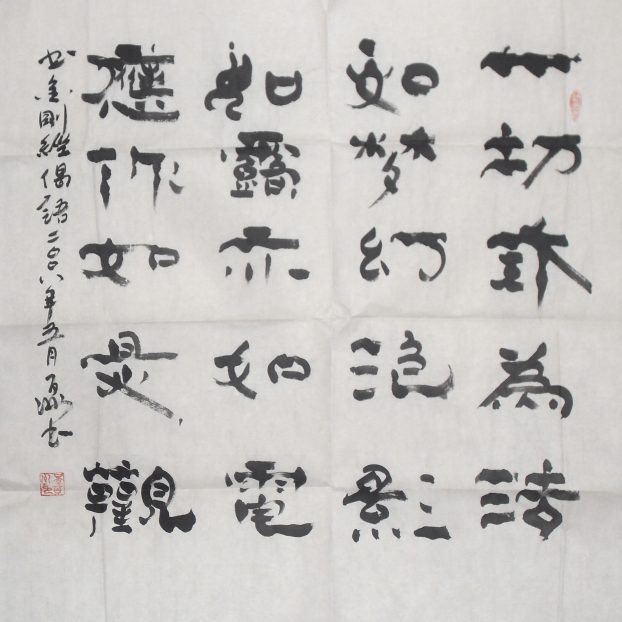 一切為法
如梦幻泡影
如露亦如電
應作如是觀
书金剛經偈語二〇〇八年五月书